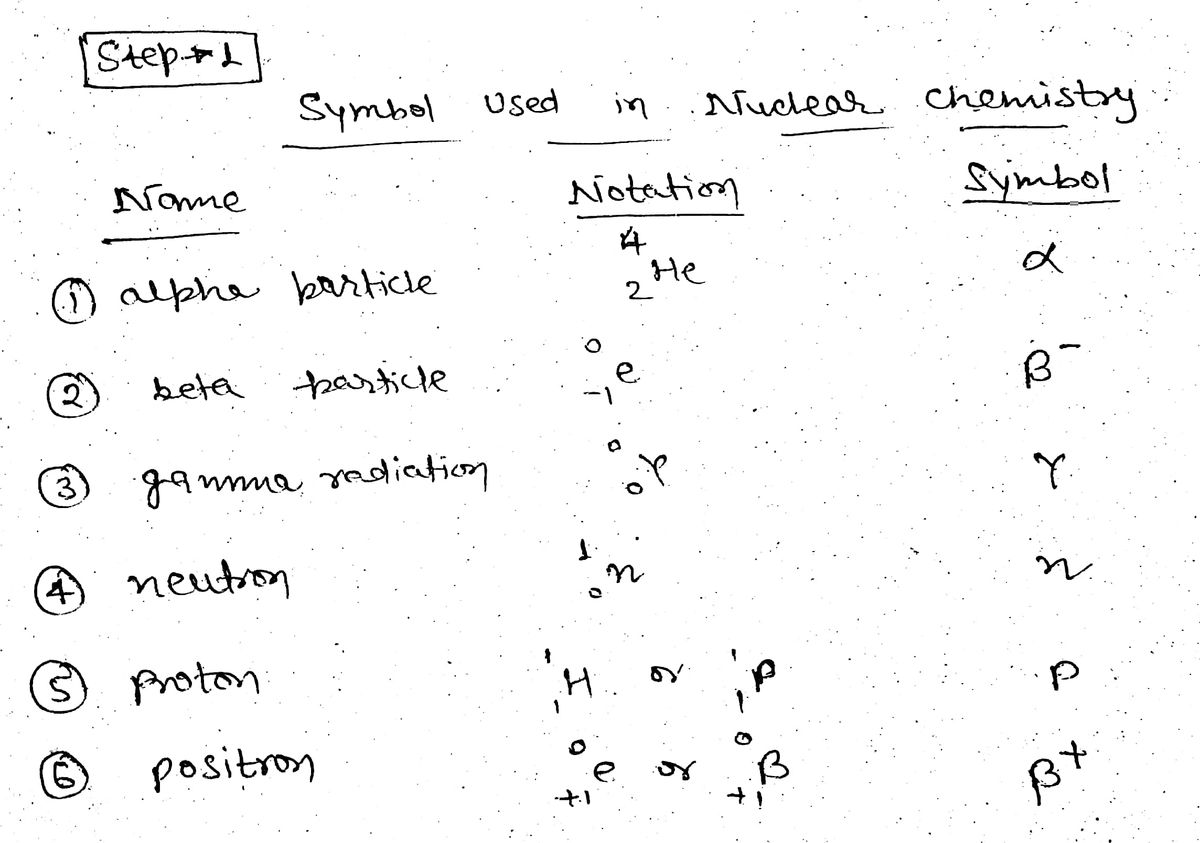 Step → 1
Symbol Used in Nuclear Chemistry
Name Notation Symbol
① alpha particle ⁴₂He α
② beta particle ⁰₋₁e β⁻
③ gamma radiation ⁰₀γ γ
④ neutron ¹₀n n
⑤ proton ¹₁H or ¹₁P P
⑥ positron ⁰₊₁e or ⁰₊₁β β⁺